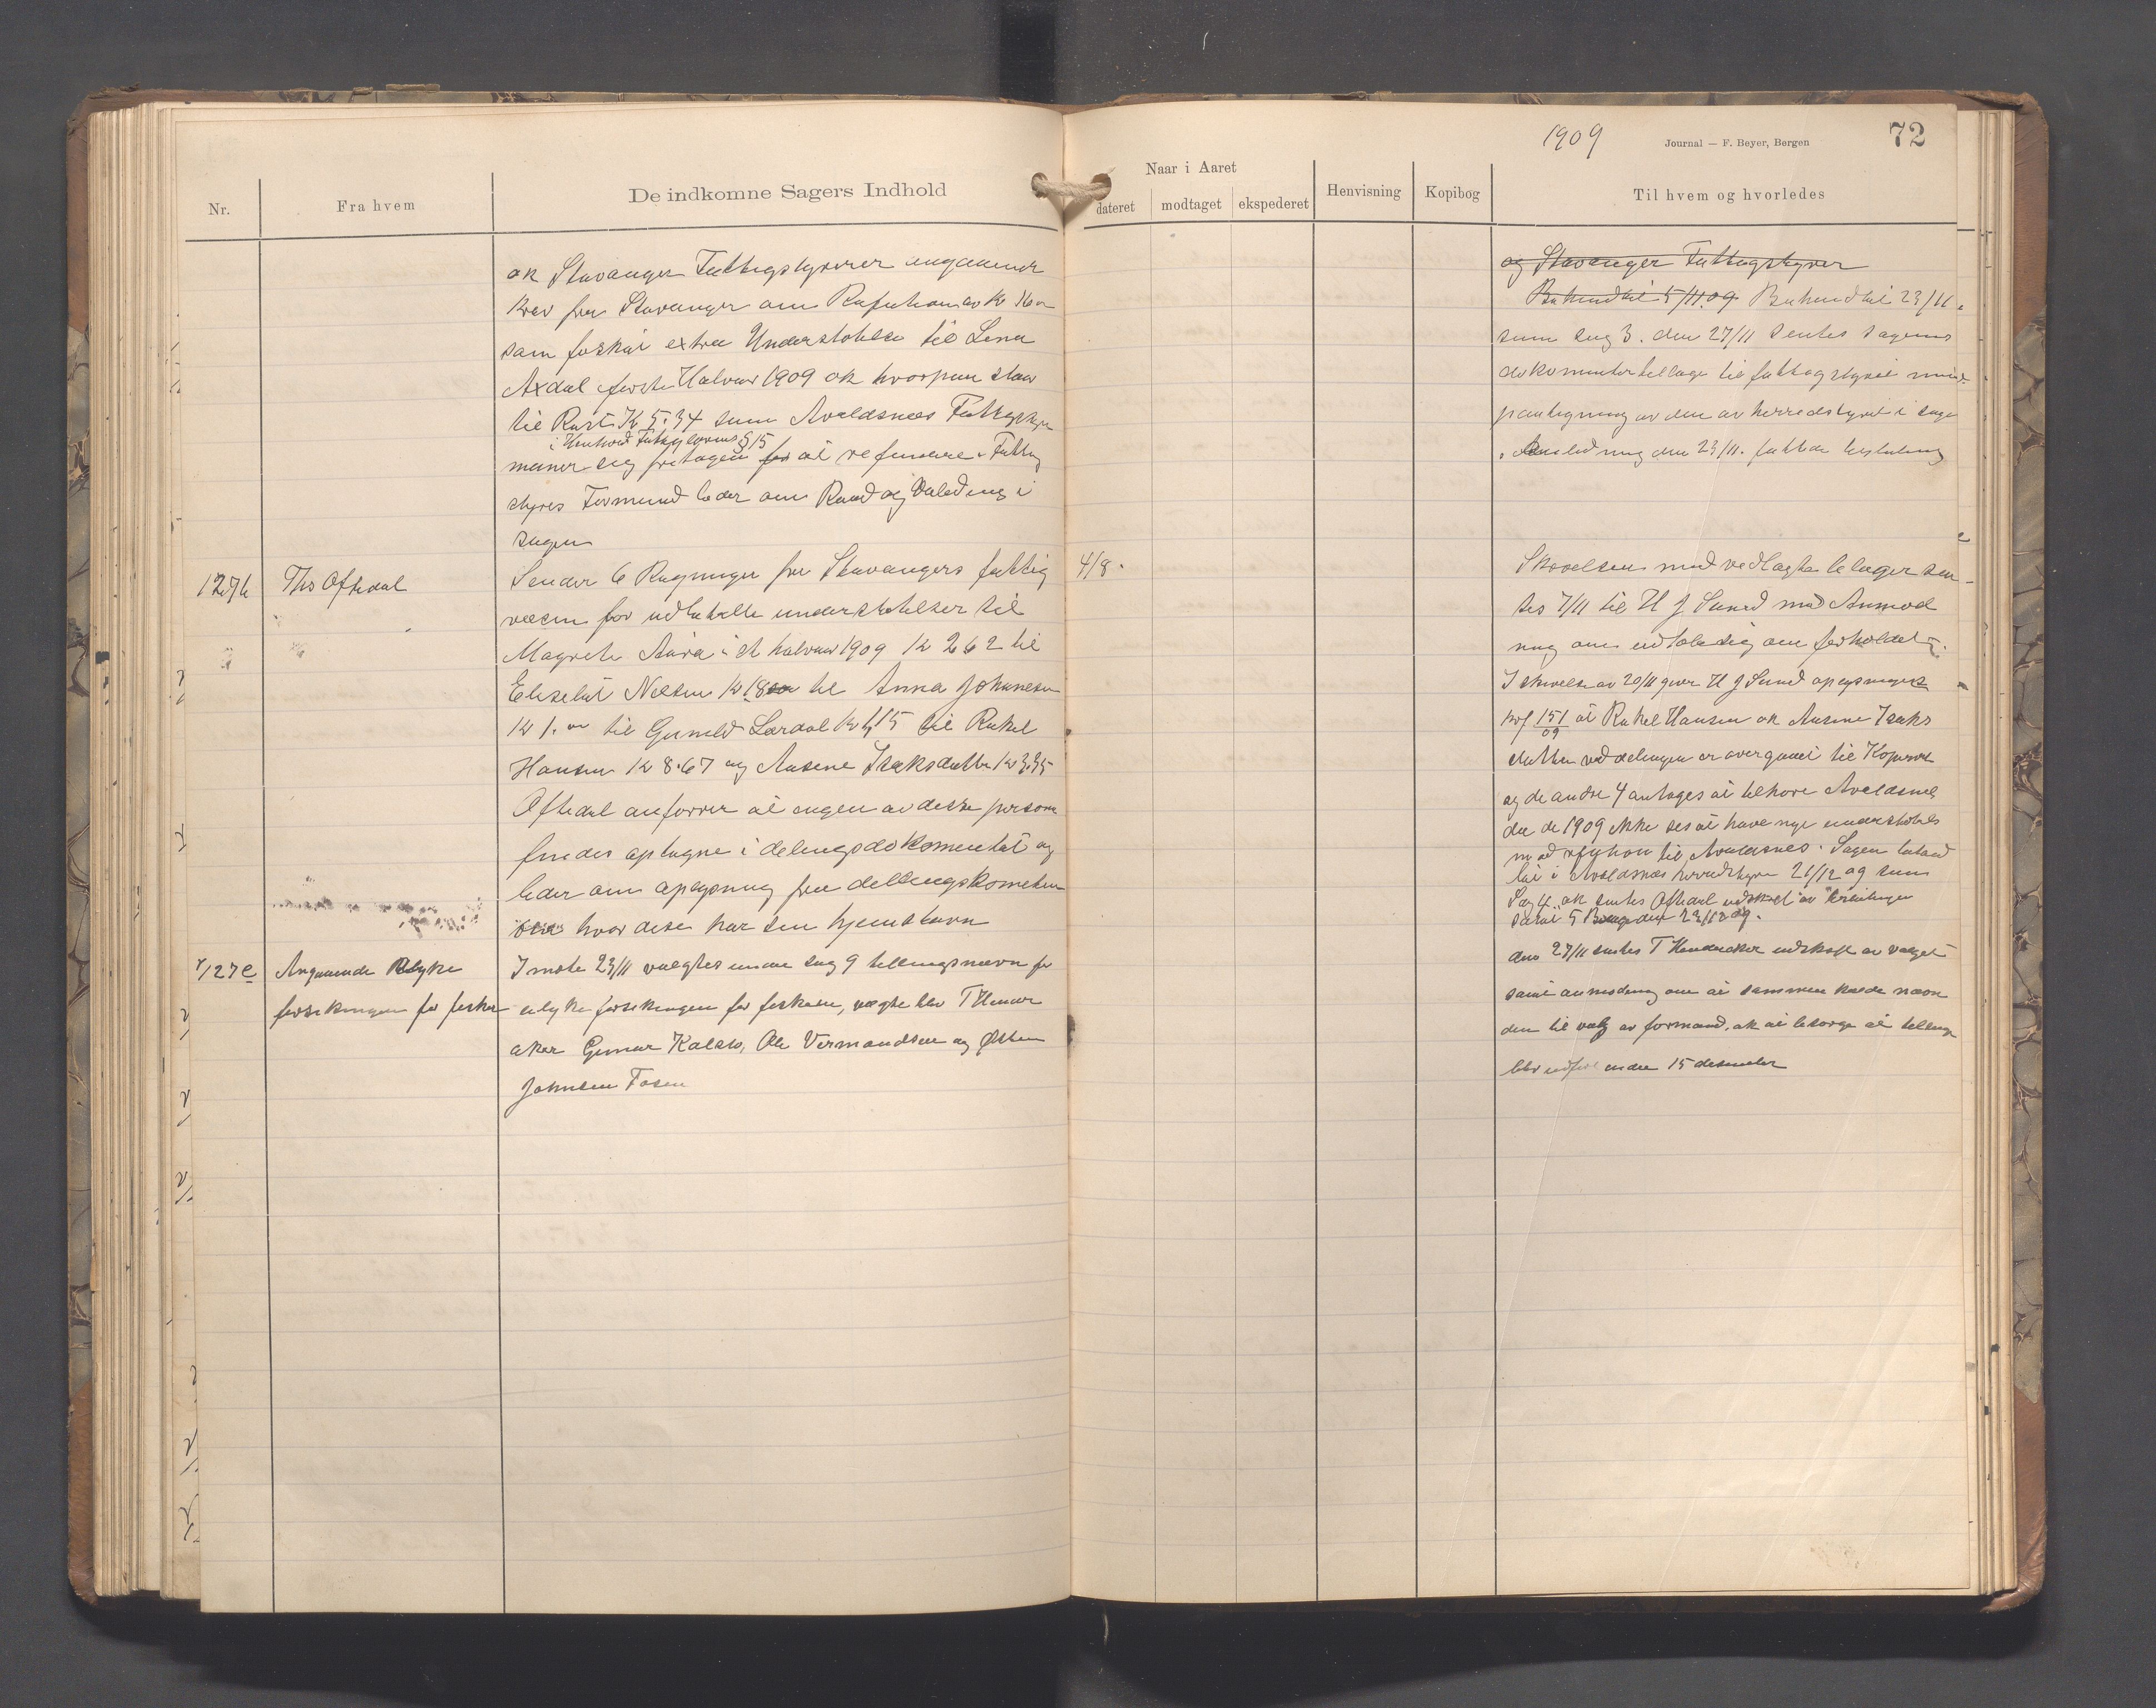 1909
Journal — F. Beyer, Bergen
72
Nr.
Fra hvem
De indkomne Sagers Indhold
Naar i Aaret
dateret
modtaget
ekspederet
Henvisning
Kopibog
Til hvem og hvorledes
ok Stavanger Fattigstyrer angaaende
krav fra Stavanger om Refution av Kr
som foskut extra Understøttelse til Lena
Axdal første Halvaar 1909 ok hvorpaa staar
til Rest Kr 5.34 som Avaldsnes Fattigstyre
i Henhold Fattiglovens § 15
mener sig fritagen for at refundere. Fattig
styres Formand beder om Raad og Veiledning i
sagen
og Stavanger Fattigstyrer
Behandlet 5/11.09. Behandlet 23/11.
som sag 3. den 27/11 sentes sagens
dokumenter tillage til fattigstyret med
paategning av den av herredstyret i sagen
Anledning den 23/11. fattede beslutning
127b
Ths Oftedal
Sender 6 Regninger fra Stavangers fattig
væsen for udbetalte understøtelser til
Magrete Aira 1st halvaar 1909 Kr 262 til
Eliselut Nelsen Kr 18 til Anna Johanesen
Kr 1. til Gunild Lordal Kr 415 til Rakel
Hansen Kr 8.67 og Ansene Isaksdatter Kr 3.35
Oftedal anfører at ingen av deske persone
findes optagne i delingsdokomentet og
beder om oplysning fra dellingskometeen
hvor dese har sin hjemstavn
4/8.
Skrivelsen med vedlagte belager sen-
tes 7/11 til H J Sund med Anmod
ning om udtale sig om forholdet.
I skrivelse av 20/11 giver H J Sund oplysninger
krf 151/09 at Rakel Hansen ok Ansine Isaks
datter ved delingen er overgaaet til Kopervik
og de andre 4 antages at tilhøre Avaldsnes
da de 1909 ikke ses at have nye understøtels
med refution til Avaldsnes. Sagen behand
let i Avaldsnes herredstyre 21/12 09 som
Sag 4. ok sentes Oftedal udskrift av beslutningen
samt 5 Bilag den 23/12 09.
127c
Angaaende Ulyke
forsikringen for fisker
I møte 23/11 valgtes under sag 9 tellingsnævn for
ulykeforsikringen for fiskere, valgte blev T Hemin
aker Gunar Kalsto, Ole Vermandsen og Østen
Johnsen Fosen
den 27/11 sentes T Heminaker udskrift av valget
samt anmodning om at sammen kalde nævn
den til valg av formand, ok at besørge at tellinge
blir udført inden 15 desember